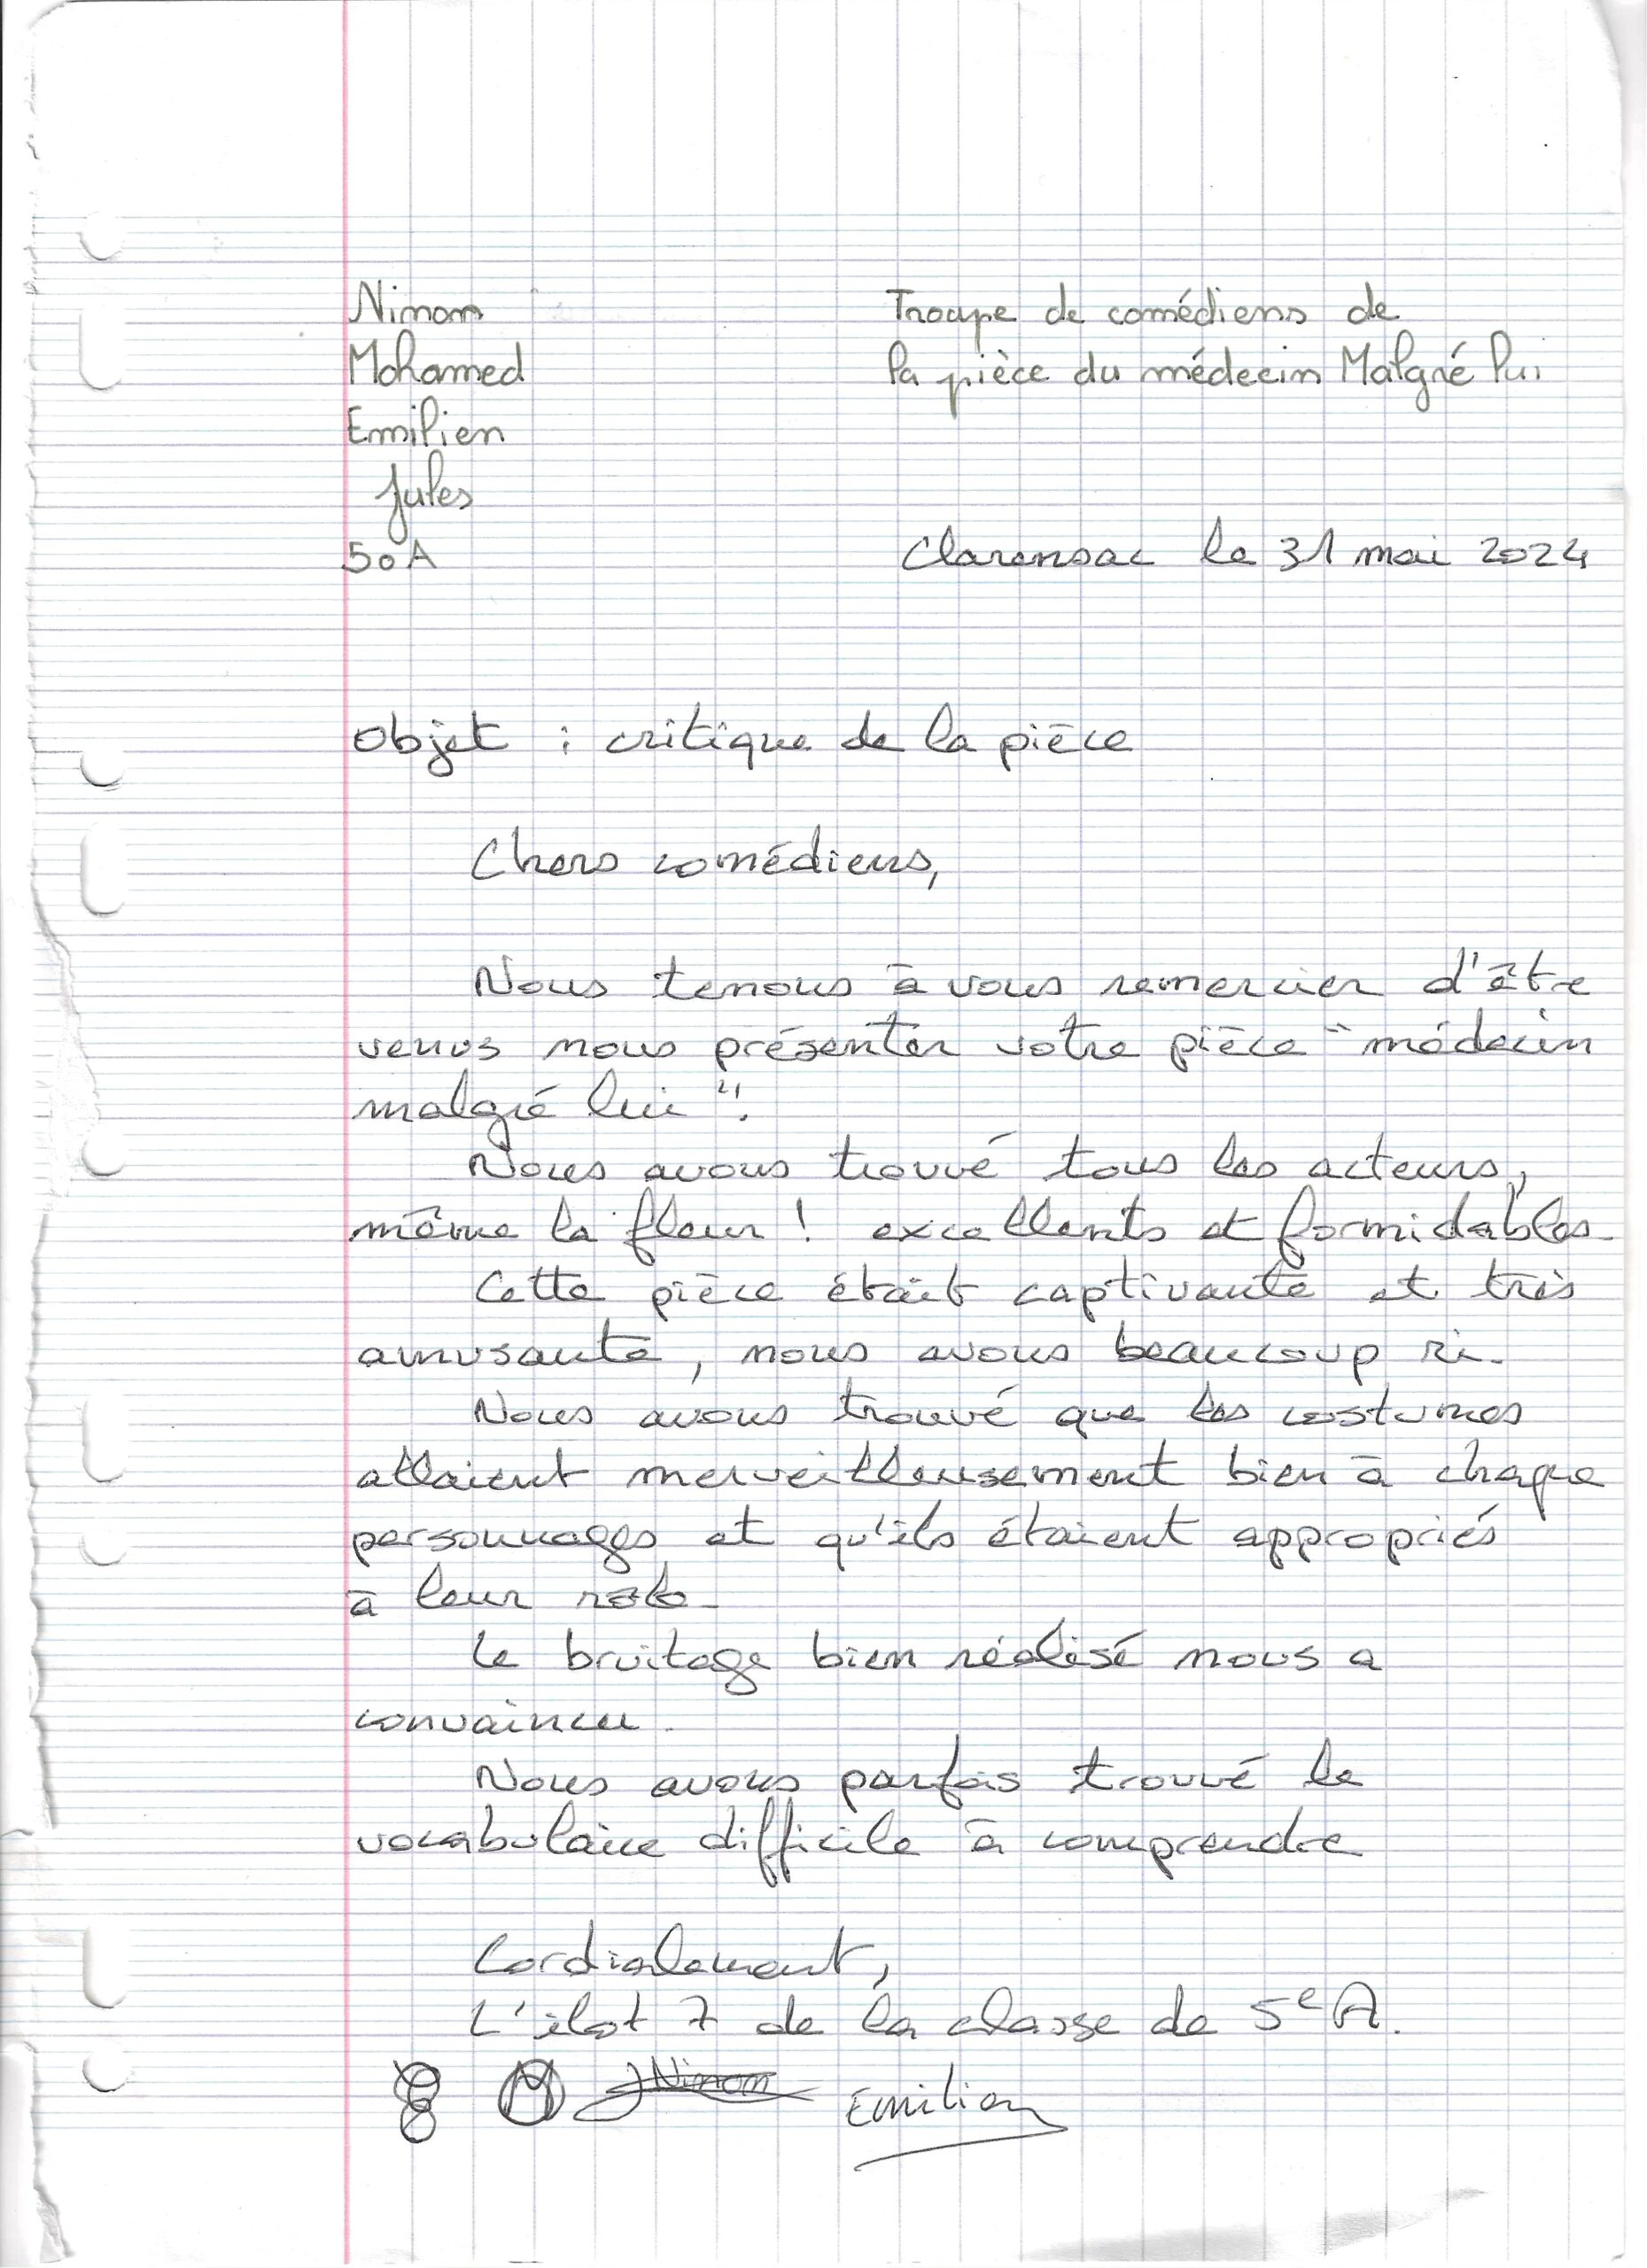 Ninon
Troupe de comédiens de
Mohamed
la pièce du médecin Malgré lui
Emilien
Jules
50A
Clarensac le 31 mai 2024
Objet : critique de la pièce
Chers comédiens,
Nous tenons à vous remercier d'être
venus nous présenter votre pièce "médecin
malgré lui".
Nous avons trouvé tous les acteurs,
même la fleur ! excellents et formidables.
Cette pièce était captivante et très
amusante, nous avons beaucoup ri.
Nous avons trouvé que les costumes
allaient merveilleusement bien à chaque
personnages et qu'ils étaient appropriés
à leur role.
Le bruitage bien réalisé nous a
convaincu.
Nous avons parfois trouvé le
vocabulaire difficile à comprendre
Cordialement,
L'ilot 7 de la classe de 5e A.
M Ninon Emilien